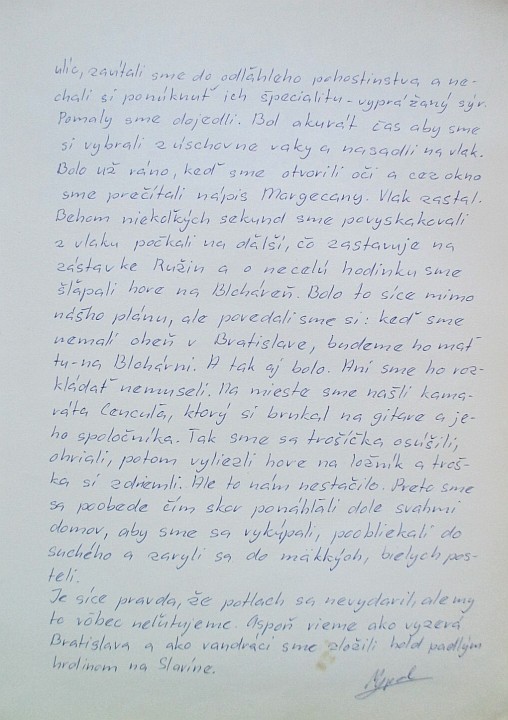 ulíc, zavítali sme do odľahlého pohostinstva a ne-
chali si ponúknuť ich špecialitu - vyprážaný sýr.
Pomaly sme dojedli. Bol akurát čas aby sme
si vybrali z úschovne vaky a nasadli na vlak.
Bolo už ráno, keď sme otvorili oči a cez okno
sme prečítali nápis Margecany. Vlak zastal.
Behom niekoľkých sekund sme povyskakovali
z vlaku počkali na ďalší, čo zastavuje na
zástavke Ružin a o necelú hodinku sme
šľapali hore na Blcháreň. Bolo to síce mimo
nášho plánu, ale povedali sme si: keď sme
nemali oheň v Bratislave, budeme ho mať
tu - na Blchárni. A tak aj bolo. Ani sme ho roz-
kládať nemuseli. Na mieste sme našli kama-
ráta Cencuľa, ktorý si brnkal na gitare a je-
ho spoločníka. Tak sme sa trošíčka osúšili,
ohriali, potom vyliezli hore na ložník a troš-
ka si zdriemli. Ale to nám nestačilo. Preto sme
sa poobede čím skor ponáhľali dole svahmi
domov, aby sme sa vykúpali, poobliekali do
suchého a zaryli sa do mäkkých, bielych pos-
telí.
Je síce pravda, že potlach sa nevydaril, ale my
to vôbec neľutujeme. Aspoň vieme ako vyzerá
Bratislava a ako vandráci sme zložili hold padlým
hrdinom na Slavíne.